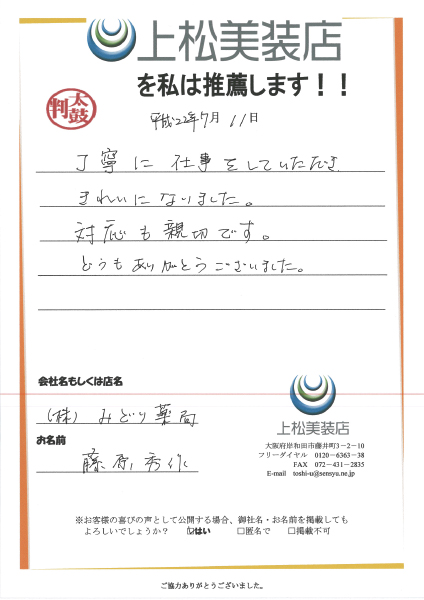 上松美装店
を私は推薦します！！
太鼓判
平成22年7月11日
丁寧に仕事をしていただき
きれいになりました。
対応も親切です。
どうもありがとうございました。
会社名もしくは店名
(株)みどり薬局
お名前
藤原秀作
上松美装店
大阪府岸和田市藤井町3-2-10
フリーダイヤル 0120-6363-38
FAX 072-431-2835
E-mail toshi-u@sensyu.ne.jp
※お客様の喜びの声として公開する場合、御社名・お名前を掲載しても
よろしいでしょうか？ ☑はい □匿名で □掲載不可
ご協力ありがとうございました。